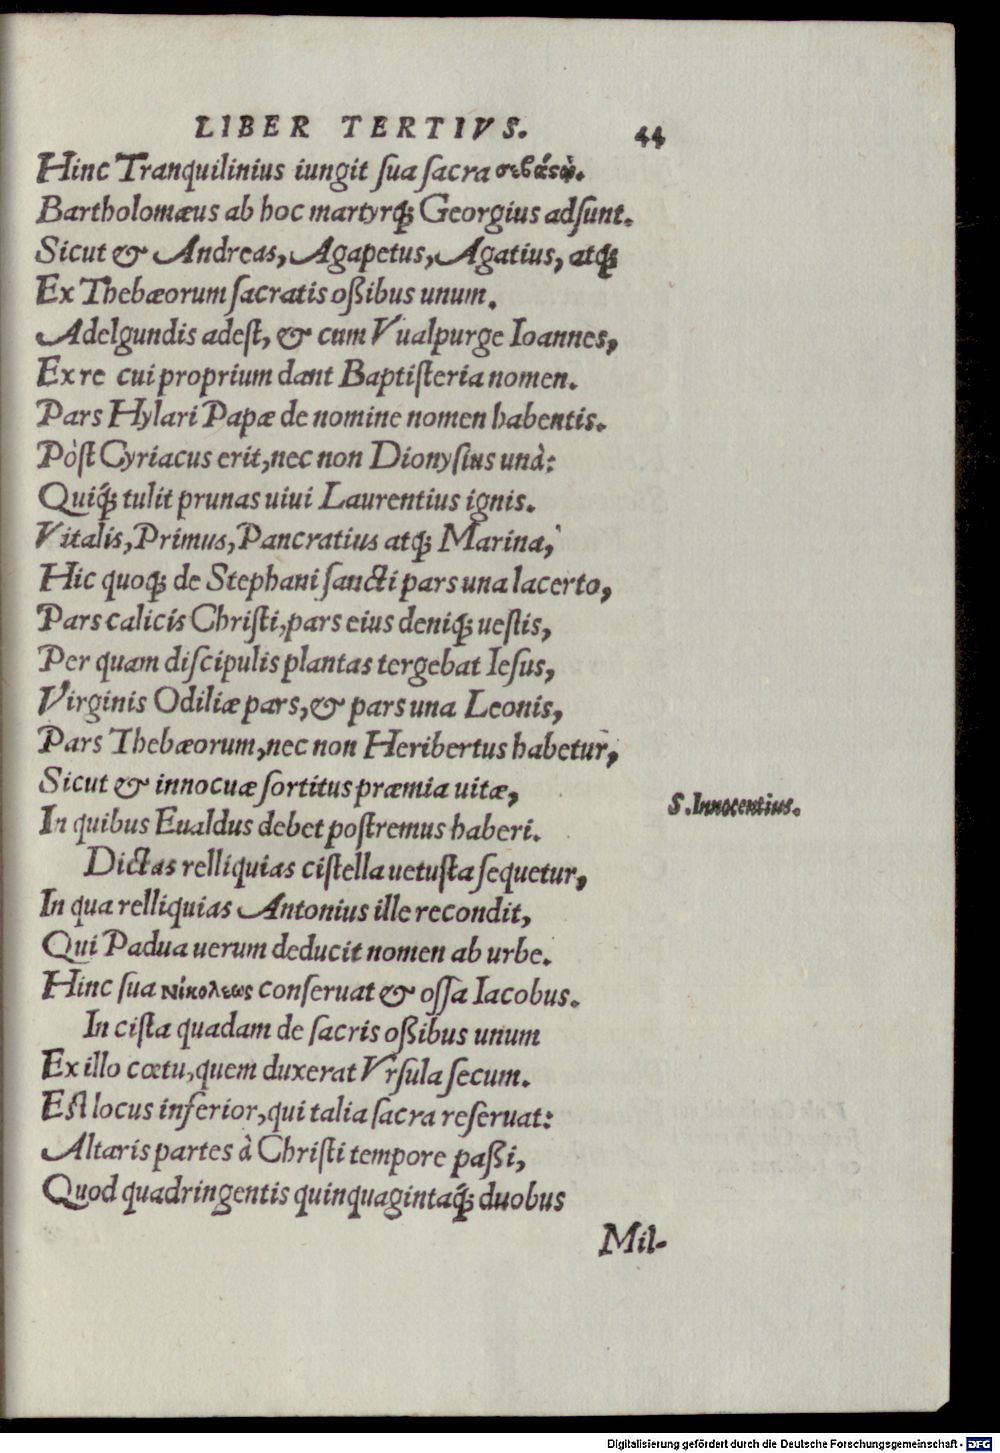 LIBER TERTIVS. 44
Hinc Tranquilinius iungit sua sacra σεβάσῳ.
Bartholomæus ab hoc martyrq́; Georgius adsunt.
Sicut & Andreas, Agapetus, Agatius, atq́;
Ex Thebæorum sacratis oßibus unum.
Adelgundis adest, & cum Vualpurge Ioannes,
Ex re cui proprium dant Baptisteria nomen.
Pars Hylari Papæ de nomine nomen habentis.
Pòst Cyriacus erit, nec non Dionysius unà:
Quiq́; tulit prunas uiui Laurentius ignis.
Vitalis, Primus, Pancratius atq́; Marina,
Hic quoq; de Stephani sancti pars una lacerto,
Pars calicis Christi, pars eius deniq́; uestis,
Per quam discipulis plantas tergebat Iesus,
Virginis Odiliæ pars, & pars una Leonis,
Pars Thebæorum, nec non Heribertus habetur,
Sicut & innocuæ sortitus præmia uitæ,
S. Innocentius.
In quibus Eualdus debet postremus haberi.
Dictas relliquias cistella uetusta sequetur,
In qua relliquias Antonius ille recondit,
Qui Padua uerum deducit nomen ab urbe.
Hinc sua νίκολεως conseruat & ossa Iacobus.
In cista quadam de sacris oßibus unum
Ex illo cœtu, quem duxerat Vrsula secum.
Est locus inferior, qui talia sacra reseruat:
Altaris partes à Christi tempore paßi,
Quod quadringentis quinquagintaq́; duobus
Mil-
Digitalisierung gefördert durch die Deutsche Forschungsgemeinschaft - DFG